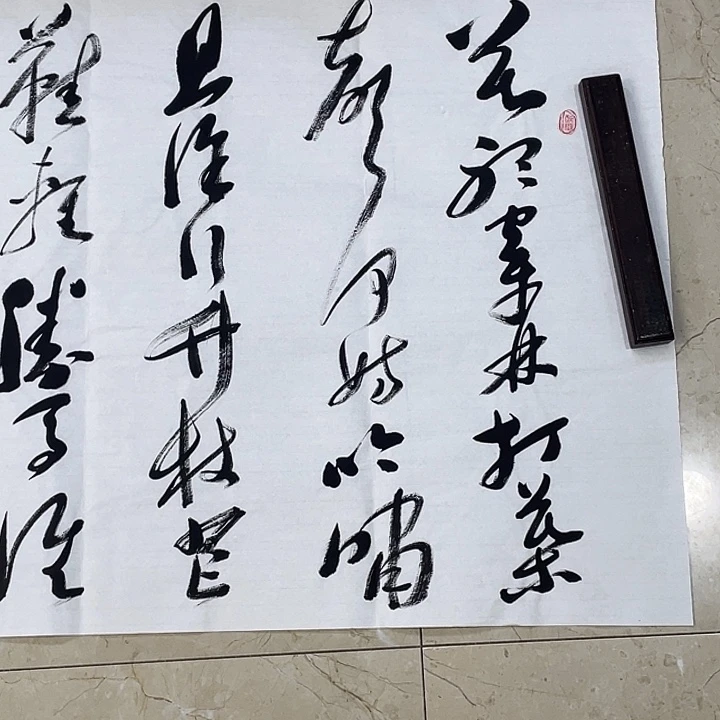 莫听穿林打叶
声何妨吟啸
且徐行竹杖芒
鞋轻胜马谁